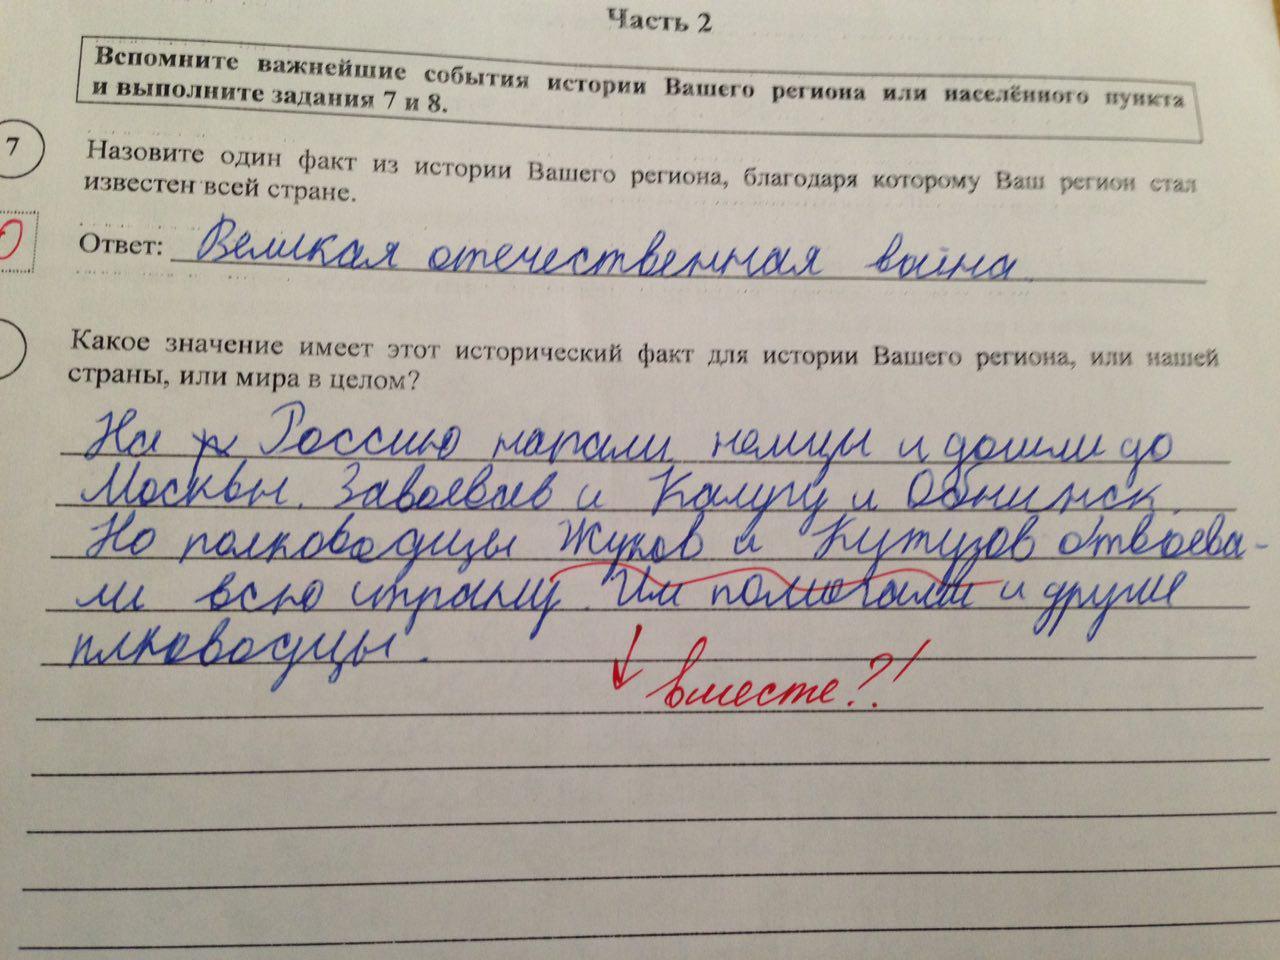 Часть 2
Вспомните важнейшие события истории Вашего региона или населённого пункта
и выполните задания 7 и 8.
7
Назовите один факт из истории Вашего региона, благодаря которому Ваш регион стал
известен всей стране.
0
Ответ: Великая отечественная война
Какое значение имеет этот исторический факт для истории Вашего региона, или нашей
страны, или мира в целом?
На Россию напали немцы и дошли до
Москвы. Завоевав и Калугу и Обнинск.
Но полководцы Жуков и Кутузов отвоева-
ли всю страну. Им помогали и другие
плководцы.
вместе?!